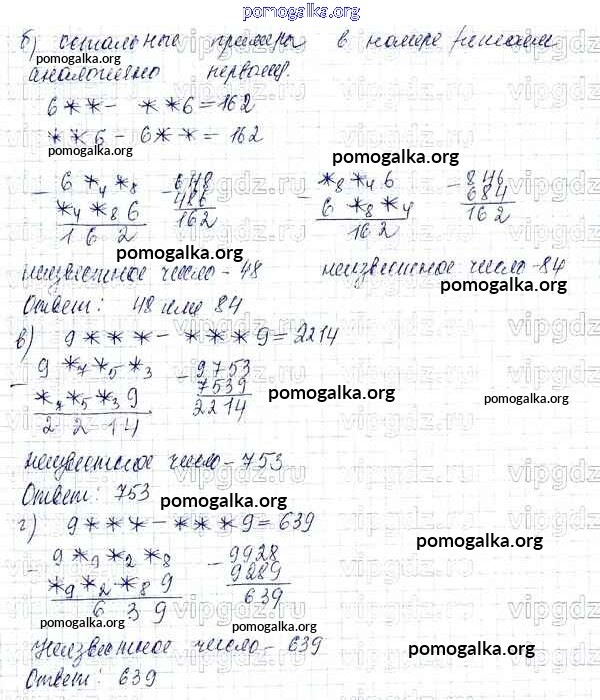 pomogalka.org
б) остальные примеры в номере решаем
аналогично первому.
pomogalka.org
6 * * - * * 6 = 162
* * 6 - 6 * * = 162
pomogalka.org
pomogalka.org
- 6 *4 *8 - 648 - *8 *4 6 - 846
*4 *8 6 486 6 *8 *4 684
1 6 2 162 162 162
pomogalka.org
неизвестное число - 48 неизвестное число - 84
pomogalka.org
Ответ: 48 или 84
в) 9 * * * - * * * 9 = 2214
- 9 *7 *5 *3 - 9753
*7 *5 *3 9 7539
2 2 1 4 2214
pomogalka.org
неизвестное число - 753
Ответ: 753
pomogalka.org
г) 9 * * * - * * * 9 = 639
pomogalka.org
- 9 *9 *2 *8 - 9928
*9 *2 *8 9 9289
6 3 9 639
pomogalka.org
Неизвестное число - 639
pomogalka.org
Ответ: 639
vipgdz.ru